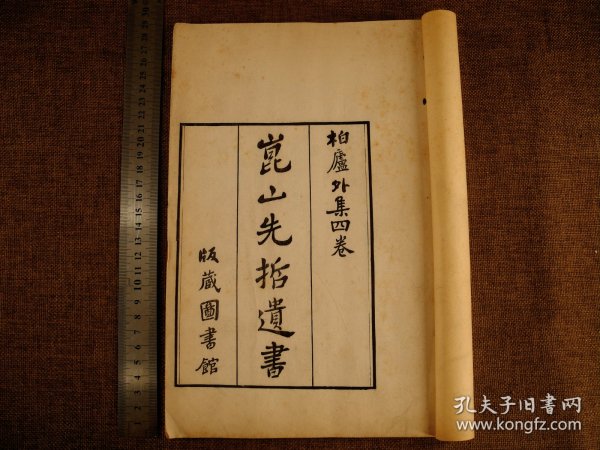 柏廬外集四卷
崑山先哲遺書
版藏圖書館
孔夫子旧书网
www.kongfz.com